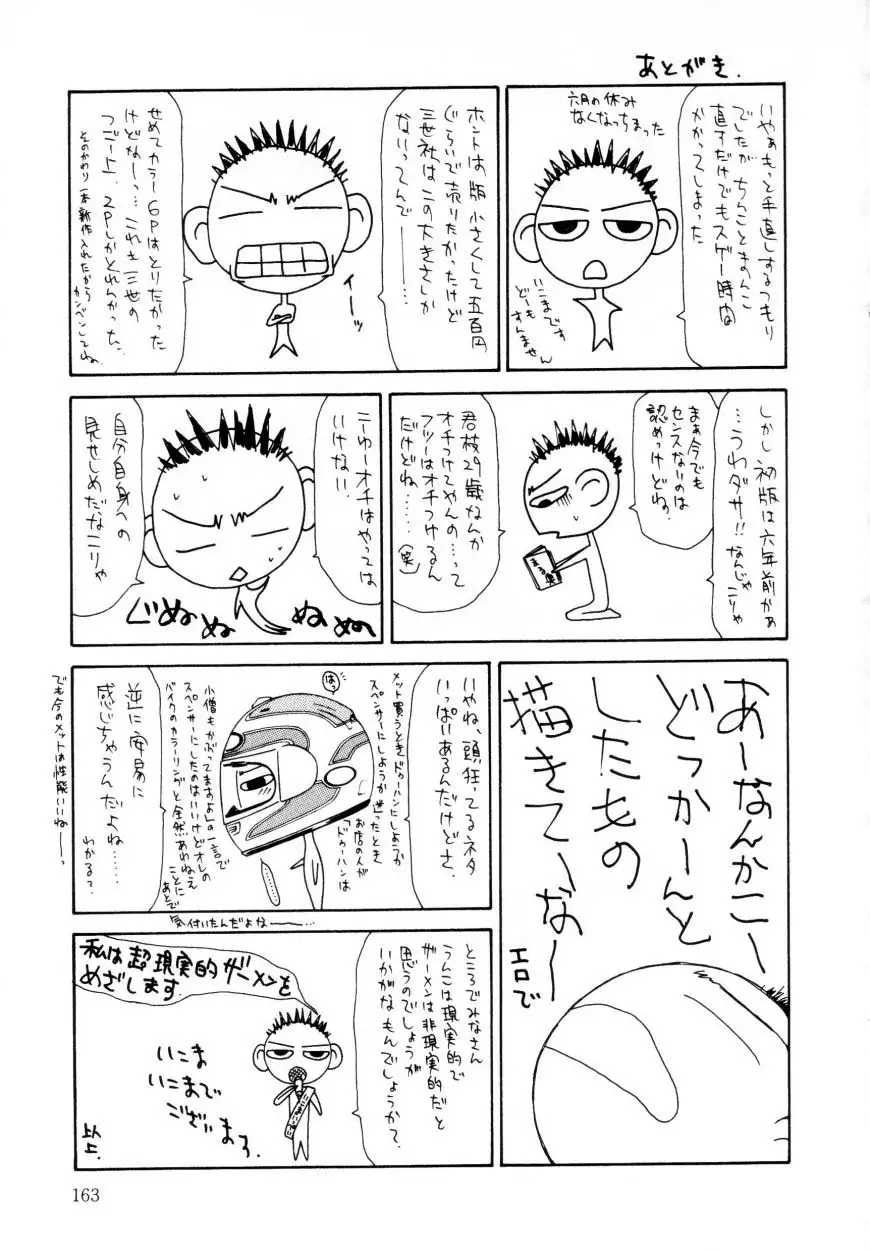 あとがき.
いやぁもっと手直しするつもり
でしたがちんことまんこ
直すだけでもスゲー時間
かかってしまった
六月の休み
なくなっちまった
いこまです
どーも
すんません
ホントは版小さくして五百円
ぐらいで売りたかったけど
三世社はこの大きさしか
ないってんで―――…
イーッ
せめてカラー6Pはとりたかった
けどなーっ…これも三世の
つごー上、2Pしかとれなかった、
そのかわり一本新作入れたからカンベンしてね。
しかし初版は六年前かぁ
…うわダサ!!なんじゃこりゃ
まぁ今でも
センスないのは
認めっけどね。
君枝29歳なんか
オチつけてやんの…って
フツーはオチつけるん
だけどね……(笑)
こーゆーオチはやっては
いけない
自分自身への
見せしめだなこりゃ
ぐぬぬぬぬぬ
あーなんかこー
どっかーんと
したもの
描きてーなー
エロで
いやね、頭狂ってるネタ
いっぱいあるんだけどさ、
はっ
メット買うときドゥーハンにしようか
スペンサーにしようか迷ったとき
お店の人が
「ドゥーハンは
小僧もかぶってますよ」の一言で
スペンサーにしたのはいいけどオレの
バイクのカラーリングと全然あわねえ
ことに
あとで
気付いたんだよな―――…
逆に安易に
感じちゃうんだよね……
わかる?
でも今のメットは性能いいね――っ
ところでみなさん
うんこは現実的で
ザーメンは非現実的だと
思うのでしょうが
いかがなもんでしょうか?
私は超現実的ザーメンを
めざします
いこま
いこまで
ございます.
以上.
163